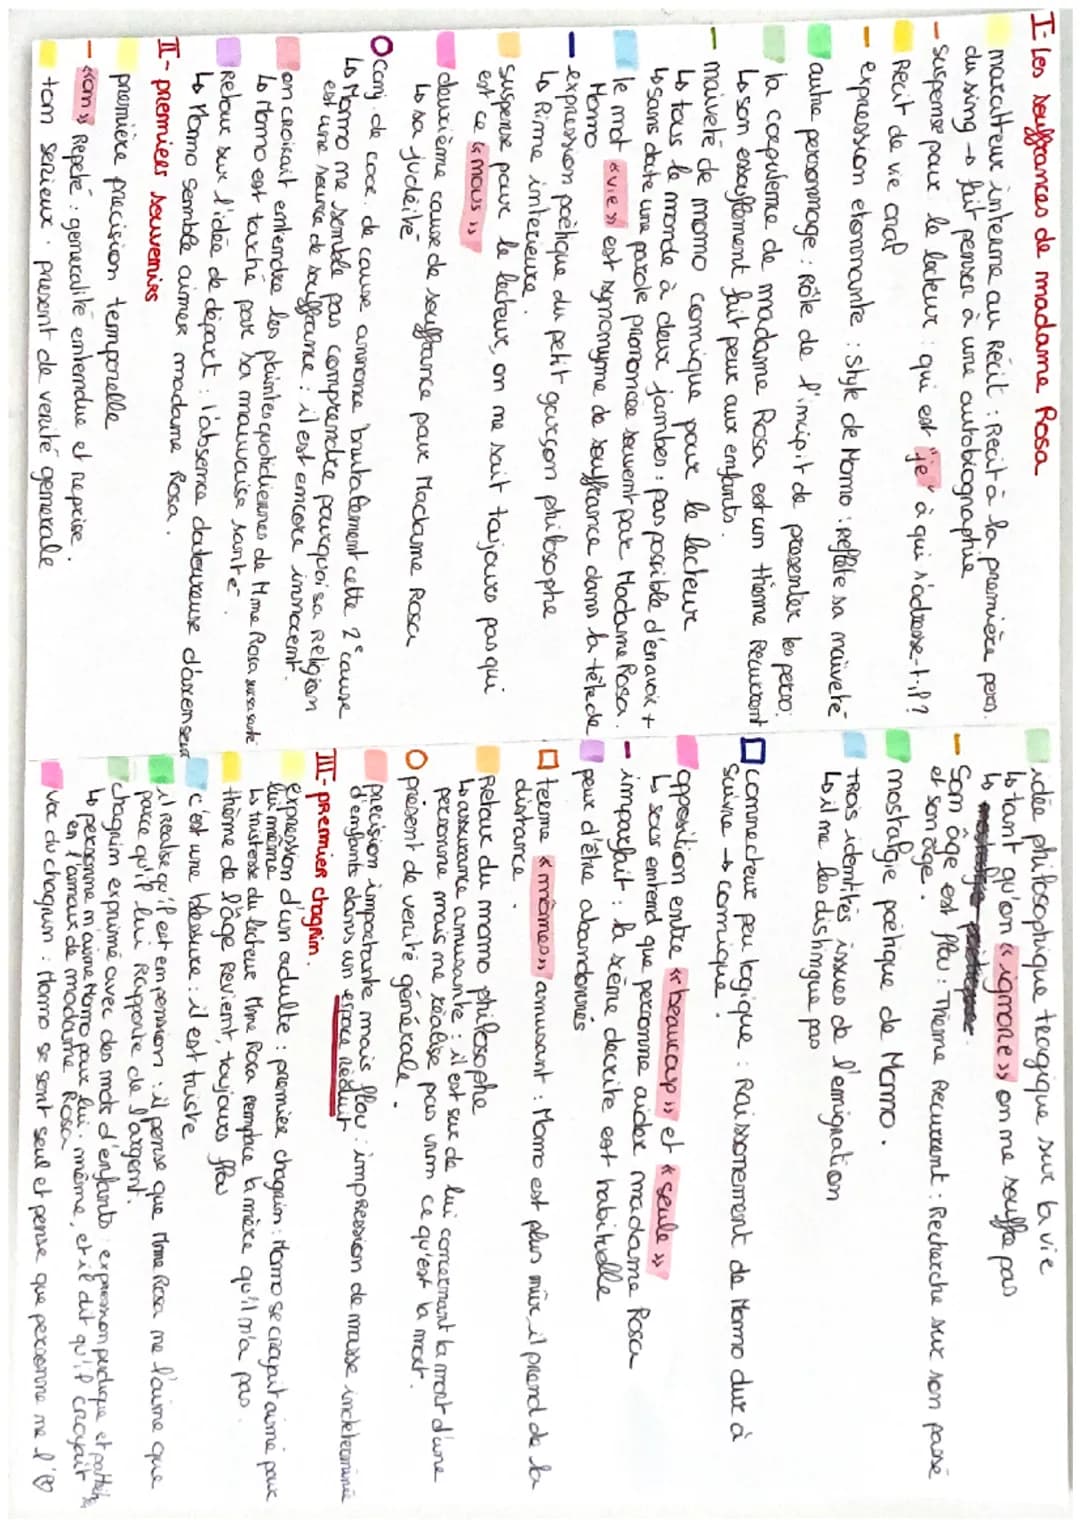 I- Les souffrances de madame Rosa
narrateur interne au Récit : Récit à la première pers.
du sing → fait penser à une autobiographie
- suspense pour le lecteur : qui est "je" à qui s'adresse-t-il ?
Récit de vie oral
- expression étonnante : style de Momo : reflète sa naïveté
autre personnage : Rôle de l'incipit de présenter les perso.
la corpulence de madame Rosa est un thème Récurrent
↳ son essoufflement fait peur aux enfants.
- naïveté de momo comique pour le lecteur
↳ tous le monde à deux jambes : pas possible d'en avoir +
↳ sans doute une parole prononcée souvent par Madame Rosa.
le mot « vie » est synonyme de souffrance dans la tête de
Momo
- expression poétique du petit garçon philosophe
↳ Rime intérieure.
suspense pour le lecteur, on ne sait toujours pas qui
est ce « nous »
deuxième cause de souffrance pour Madame Rosa
↳ sa judéité
conj de coor. de cause annonce brutalement cette 2e cause
↳ Momo ne semble pas comprendre pourquoi sa religion
est une source de souffrance : il est encore innocent.
on croirait entendre les plaintes quotidiennes de Mme Rosa sur sa santé
↳ Momo est touché par sa mauvaise santé.
Retour sur l'idée de départ : l'absence douloureuse d'ascenseur
↳ Momo semble aimer madame Rosa.
II- premiers souvenirs
première précision temporelle
- « on » Répété : généralité entendue et reprise.
ton sérieux. présent de vérité générale
idée philosophique tragique sur la vie
↳ tant qu'on « ignore » on ne souffre pas
- Son âge est flou : Thème Récurrent : Recherche sur son passé
et son âge.
nostalgie poétique de Momo.
TRois identités issues de l'émigration
↳ il ne les distingue pas
connecteur peu logique : Raisonnement de Momo dur à
suivre → comique !
opposition entre « beaucoup » et « seule »
↳ sous entend que personne aider madame Rosa
- imparfait : la scène décrite est habituelle
peur d'être abandonnés
terme « mômes » amusant : Momo est plus mûr, il prend de la
distance.
Retour du momo philosophe
↳ assurance amusante : il est sur de lui concernant la mort d'une
personne mais ne réalise pas vrm ce qu'est la mort.
présent de vérité générale.
précision importante mais flou : impression de masse indeterminée
d'enfants dans un espace réduit
III- premier chagrin.
expression d'un adulte : premier chagrin : Momo se croyait aimé pour
lui même
↳ tristesse du lecteur Mme Rosa remplace la mère qu'il n'a pas.
thème de l'âge Revient, toujours flou
c'est une blessure : il est triste
il Réalise qu'il est en pension : il pense que Mme Rosa ne l'aime que
parce qu'il lui Rapporte de l'argent.
chagrin exprimé avec des mots d'enfants : expression pudique et
↳ personne n'aime Momo pour lui-même, et il dit qu'il croyait
en l'amour de madame Rosa
voc du chagrin : Momo se sent seul et pense que personne ne l'♡